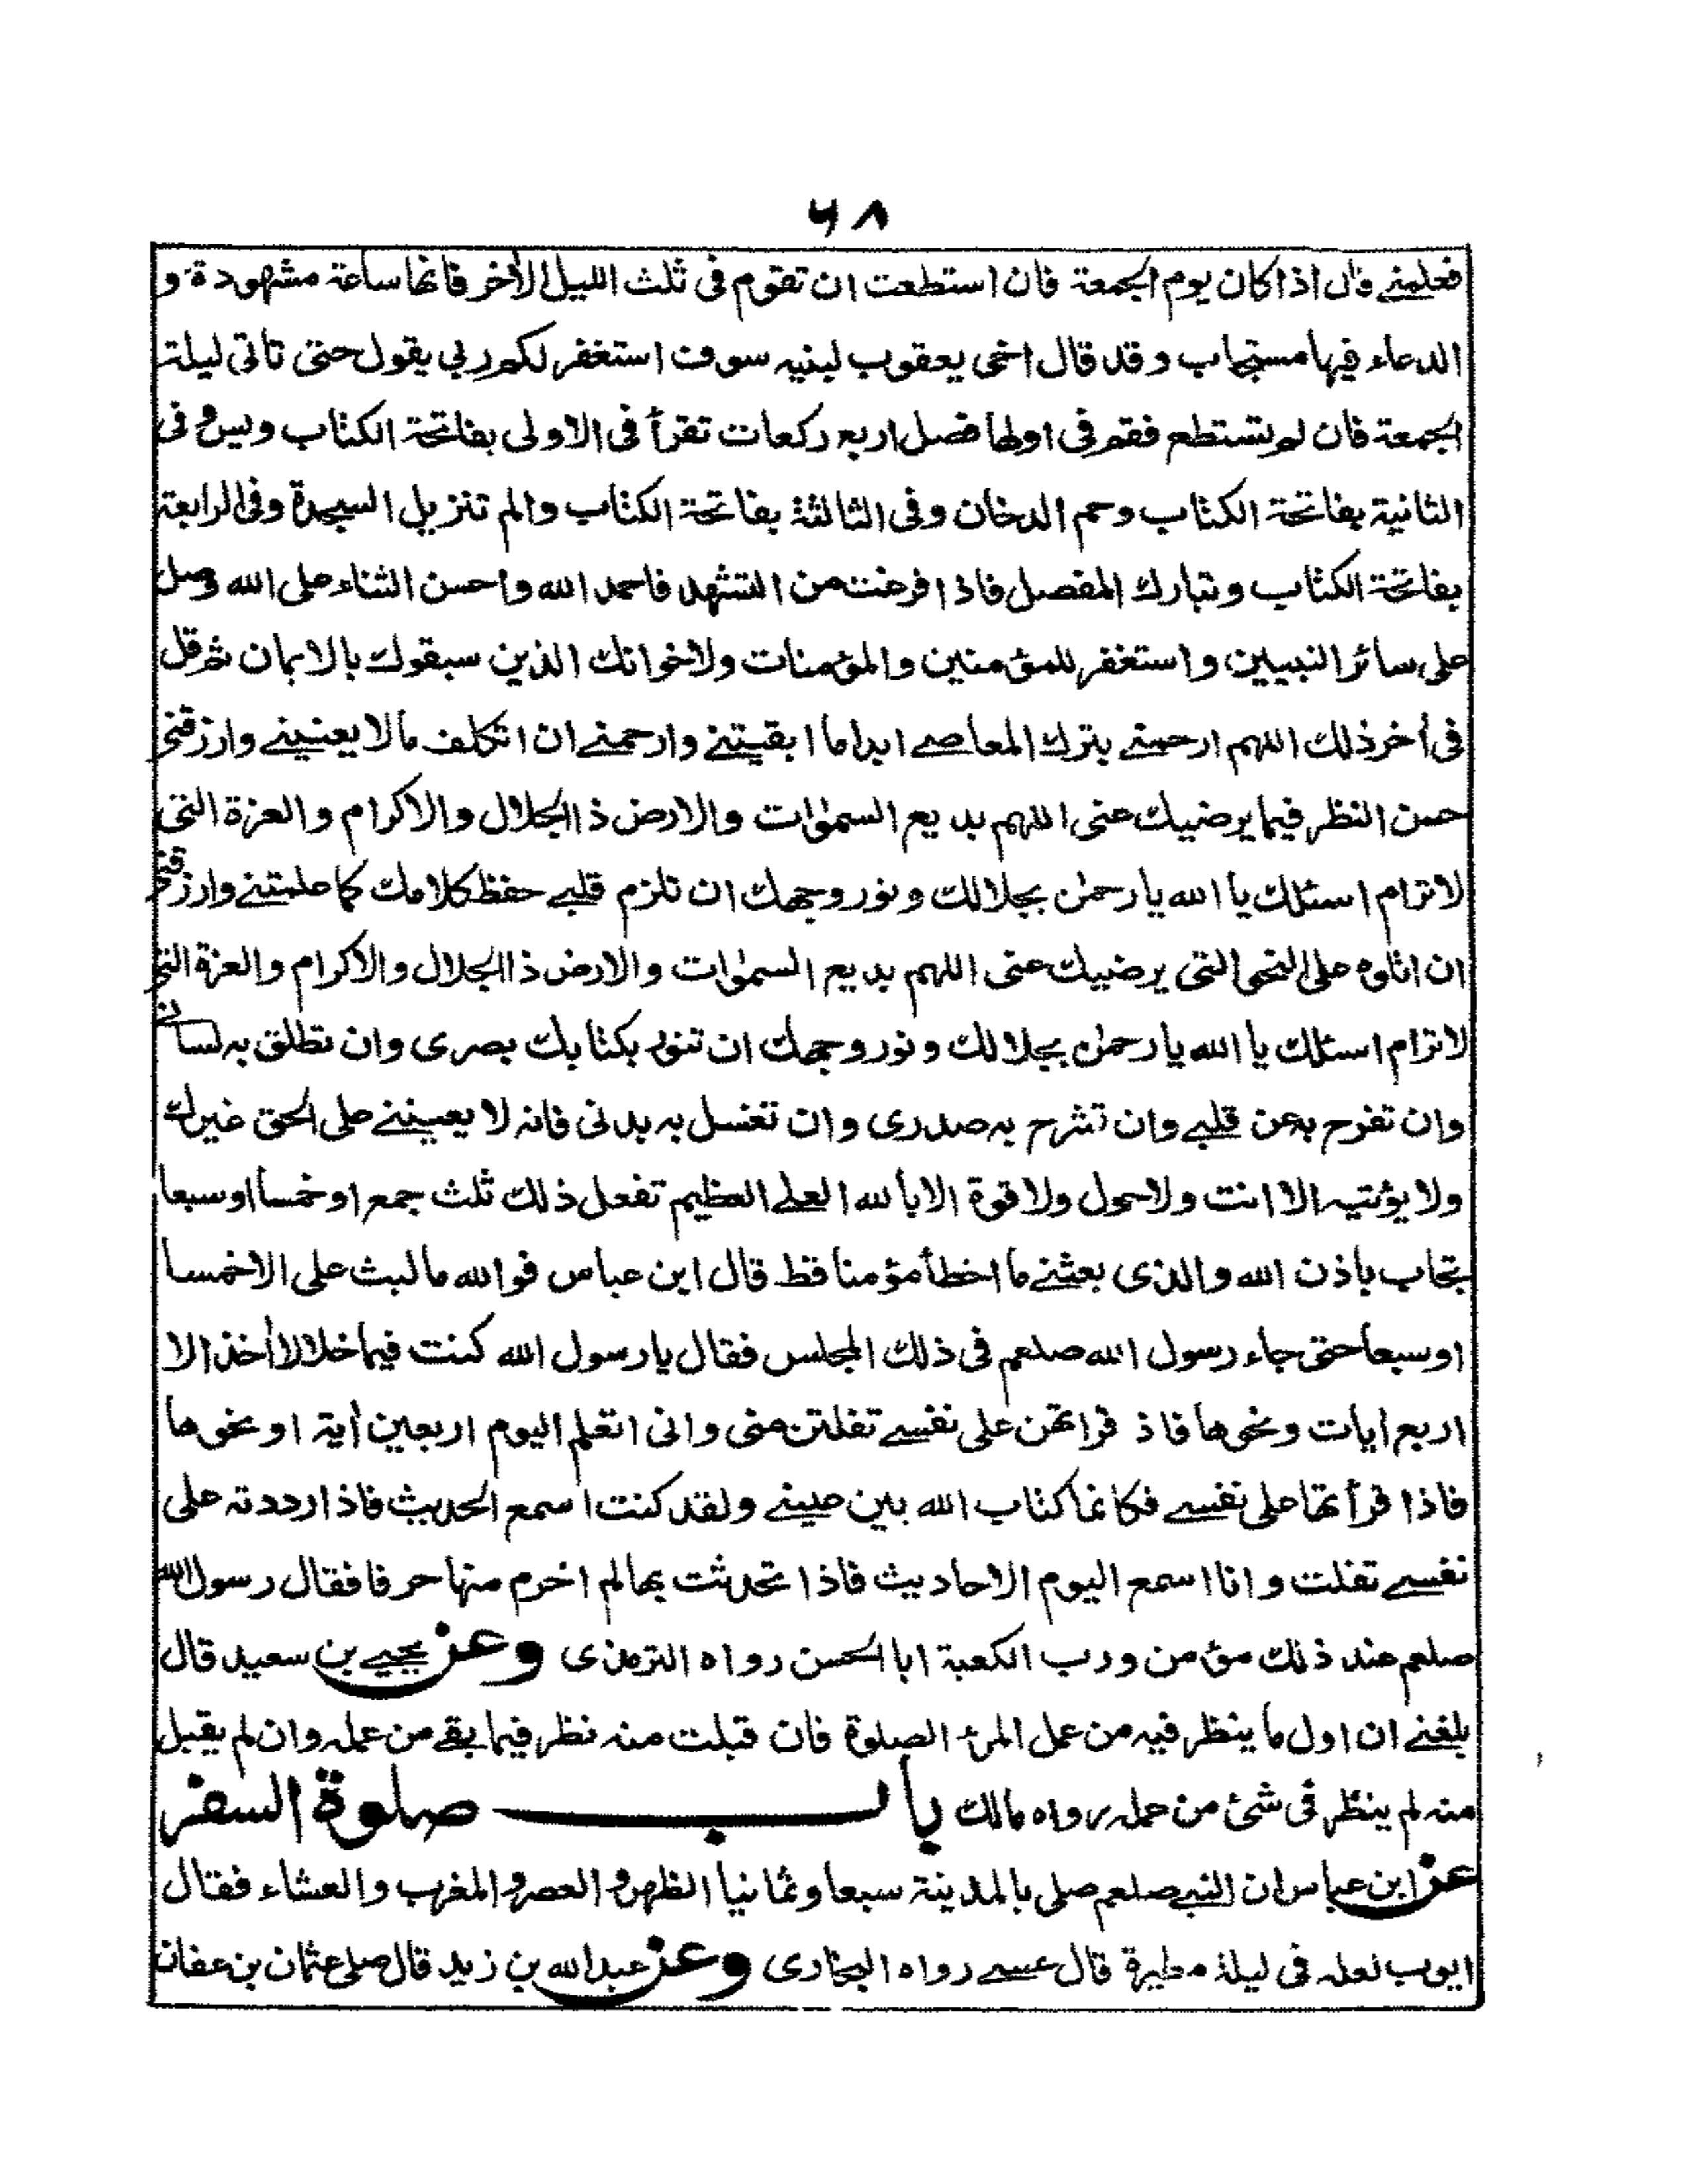 ۶۸
فعلمنے قال اذا كان يوم الجمعة فان استطعت ان تقوم فى ثلث الليل الأخر فانها ساعة مشهودة و
الدعاء فيها مستجاب وقد قال اخى يعقوب لبنيه سوف استغفر لكم ربي يقول حتى تاتى ليلة
الجمعة فان لم تستطع فقم فى اولها فصل اربع ركعات تقرأ فى الاولى بفاتحة الكتاب ويس وفى
الثانية بفاتحة الكتاب وحم الدخان وفى الثالثة بفاتحة الكتاب والم تنزيل السجدة وفى الرابعة
بفاتحة الكتاب وتبارك المفصل فاذا فرغت من التشهد فاحمد الله واحسن الثناء على الله وصل
على سائر النبيين واستغفر للمؤمنين والمؤمنات ولاخوانك الذين سبقوك بالايمان ثم قل
فى أخر ذلك اللهم ارحمنے بترك المعاصے ابدا ما ابقيتنے وارحمنے ان اتكلف مالا يعنينے وارزقنے
حسن النظر فيما يرضيك عنى اللهم بديع السمٰوات والارض ذا الجلال والاكرام والعزة التى
لاترام اسئلك يا الله يا رحمٰن بجلالك ونور وجهك ان تلزم قلبے حفظ كلامك كما علمتنے وارزقنے
ان اتلوه على النحو التى يرضيك عنى اللهم بديع السمٰوات والارض ذا الجلال والاكرام والعزة التى
لاترام اسئلك يا الله يا رحمٰن بجلالك ونور وجهك ان تنور بكتابك بصرى وان تطلق به لسانے
وان تفرح به عن قلبے وان تشرح به صدرى وان تغسل به بدنى فانه لا يعيننے على الحق غيرك
ولا يؤتيه الا انت ولاحول ولا قوة الا بالله العلے العظيم تفعل ذلك ثلث جمع او خمسا او سبعا
بتجاب باذن الله والذى بعثنے ما اخطأ مؤمنا قط قال ابن عباس فوالله ما لبث على الاخمسا
اوسبعا حتى جاء رسول الله صلعم فى ذلك المجلس فقال يا رسول الله كنت فيما خلا لا أخذ الا
اربع ايات ونحوها فاذ قراتهن على نفسے تفلتن منى وانى اتعلم اليوم اربعين أية او نحوها
فاذا قرأتها على نفسے فكانما كتاب الله بين عينے ولقد كنت اسمع الحديث فاذا رددته على
نفسے تفلت وانا اسمع اليوم الاحاديث فاذا تحدثت بها لم اخرم منها حرفا فقال رسول الله
صلعم عند ذلك مؤمن ورب الكعبة ابا الحسن رواه الترمذى وعن يحيے بن سعيد قال
بلغنے ان اول ما ينظر فيه من عمل المرء الصلوة فان قبلت منه نظر فيما بقے من عمله وان لم يقبل
منه لم ينظر فى شئ من عمله رواه مالك باب صلوة السفر
عن ابن عباس ان النبے صلعم صلى بالمدينة سبعا وثمانيا الظهر و العصر و المغرب والعشاء فقال
ايوب لعله فى ليلة مطيرة قال عسے رواه البخارى وعن عبد الله بن زيد قال صلى عثمان بن عفان